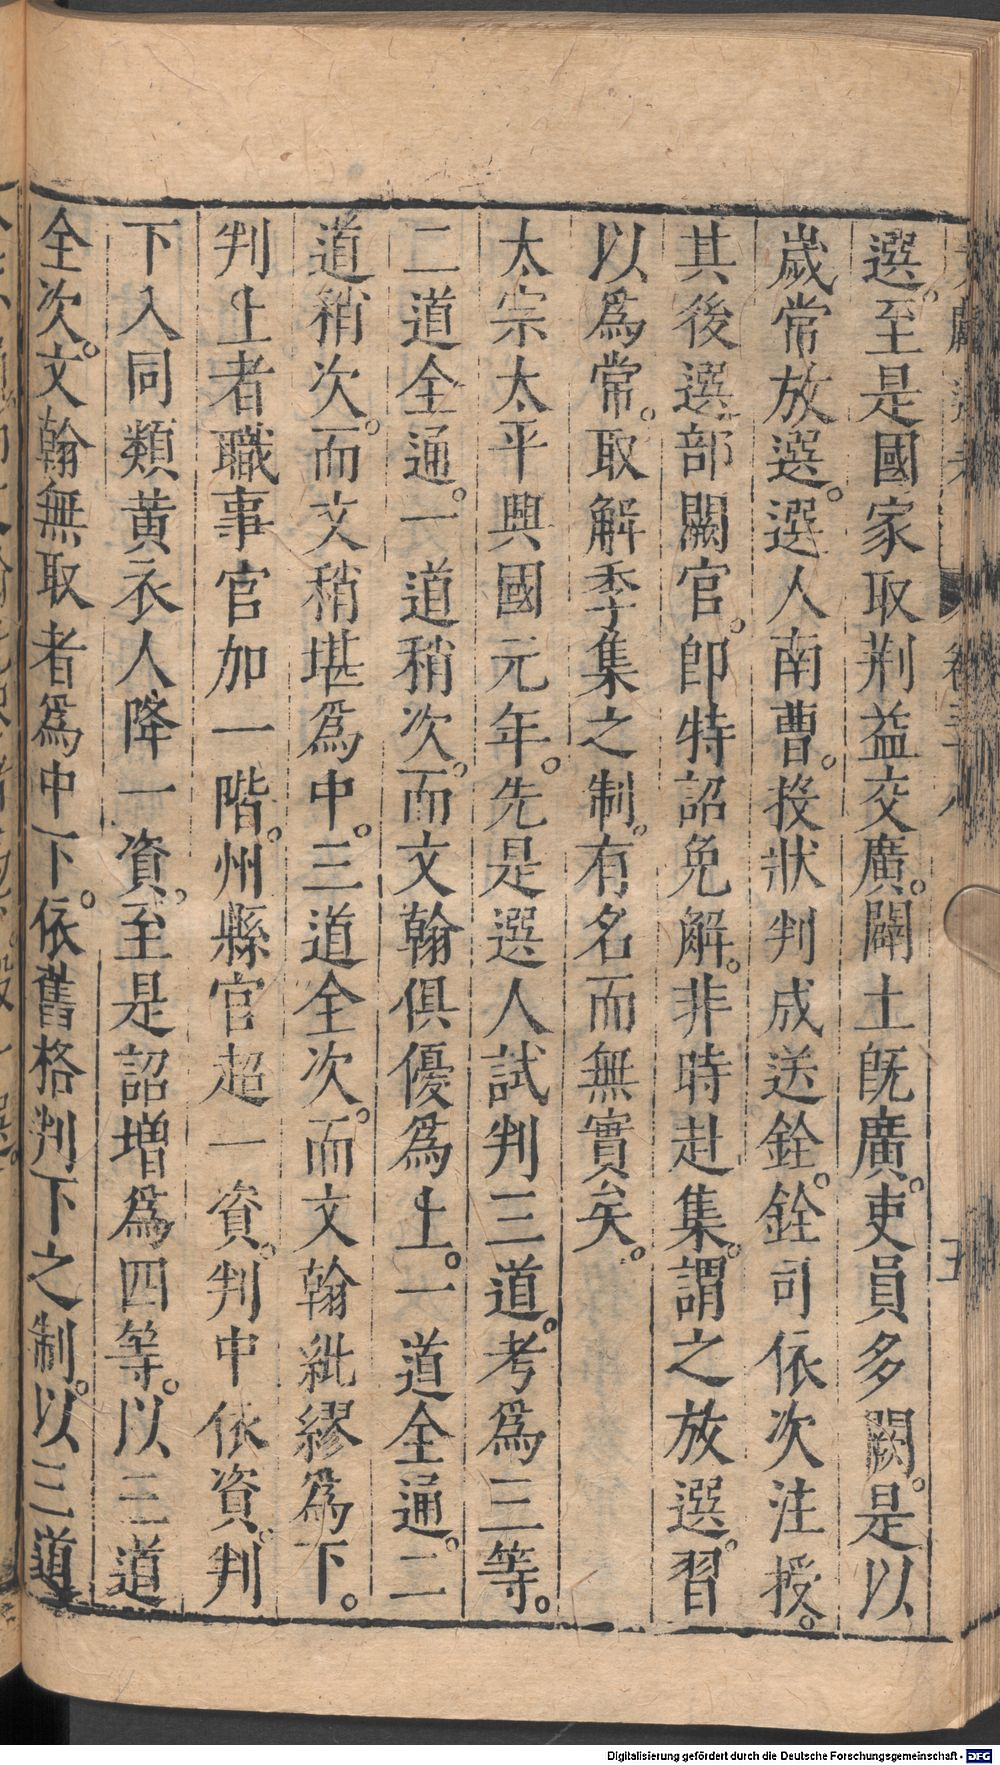 選。至是國家取荆益交廣。闢土旣廣。吏員多闕。是以
歲常放選。選人南曹。投狀判成送銓。銓司依次注授。
其後選部闕官。卽特詔免解。非時赴集。謂之放選。習
以爲常。取解季集之制。有名而無實矣。
太宗太平興國元年。先是選人試判三道。考爲三等。
二道全通。一道稍次。而文翰俱優爲上。一道全通。二
道稍次。而文稍堪爲中。三道全次。而文翰紕繆爲下。
判上者職事官加一階。州縣官超一資。判中依資。判
下入同類黄衣人降一資。至是詔增爲四等。以三道
全次。文翰無取者爲中下。依舊格判下之制。以三道
Digitalisierung gefördert durch die Deutsche Forschungsgemeinschaft - DFG